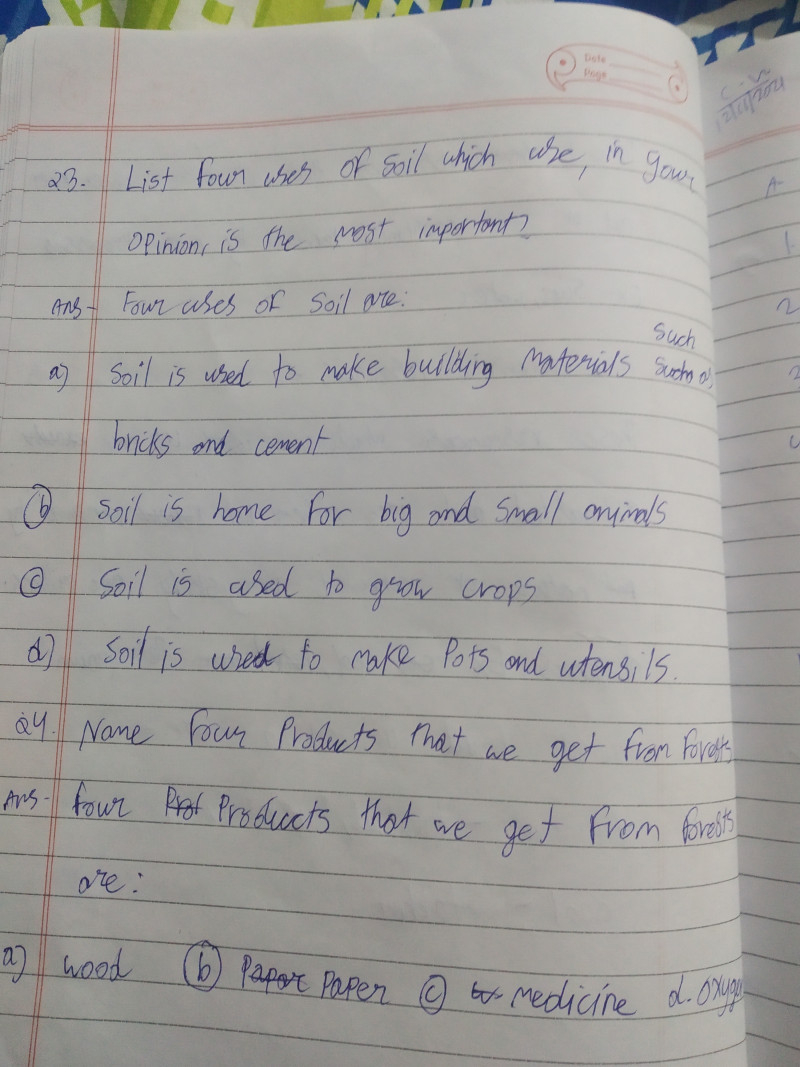 Date
Page
C.W
12/11/2024
23. List four uses of soil which use, in your
opinion, is the most important?
Ans- Four uses of soil are:
Such
a) Soil is used to make building materials as
bricks and cement
b) Soil is home for big and small animals
c) Soil is used to grow crops
d) Soil is used to make pots and utensils.
24. Name four products that we get from forests
Ans- four products that we get from forests
are:
a) wood b) paper c) medicine d. oxygen
A-
1.
2